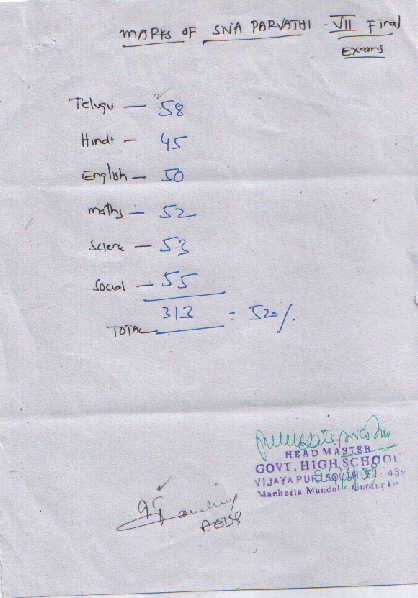 MARKS OF SNA PARVATHI - VII Final
Exams
Telugu — 58
Hindi — 45
English — 50
maths — 52
Science — 53
Social — 55
TOTAL 313 = 52%
HEAD MASTER
GOVT. HIGH SCHOOL
VIJAYAPURI SOUTH
Macherla Mandal